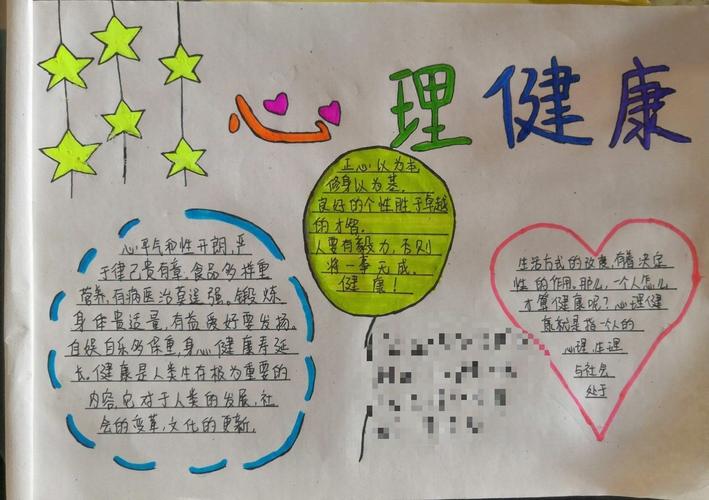 心理健康
正心以为本,
修身以为基,
良好的个性胜于卓越
的才智。
人要有毅力,否则
将一事无成。
健康!
心平气和性开朗,严
于律己贵有章,食品多样重
营养,有病医治莫逞强。锻炼
身体贵适量,有益爱好要发扬。
自娱自乐多保重,身心健康寿延
长。健康是人类生存极为重要的
内容,它对于人类的发展,社
会的变革,文化的更新,
生活方式的改变,有着决定
性的作用。那么,一个人怎么
才算健康呢?心理健
康就是指一个人的
心理,生理
与社会
处于